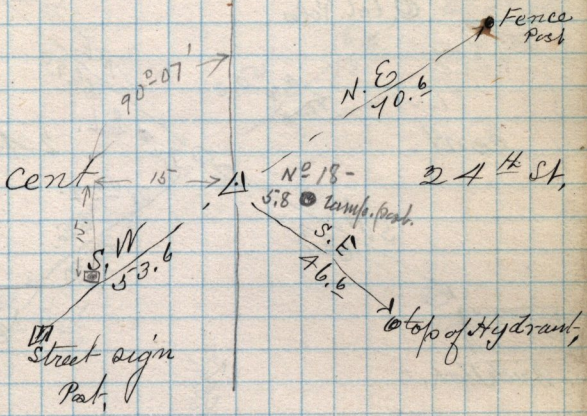 Fence
Post
90°07'
N.E
70.6
cent
15
No 18-
24th St,
5.8
lamp.post.
15.
S.W
53.6
S.E
46.6
top of Hydrant,
Street sign
Post,